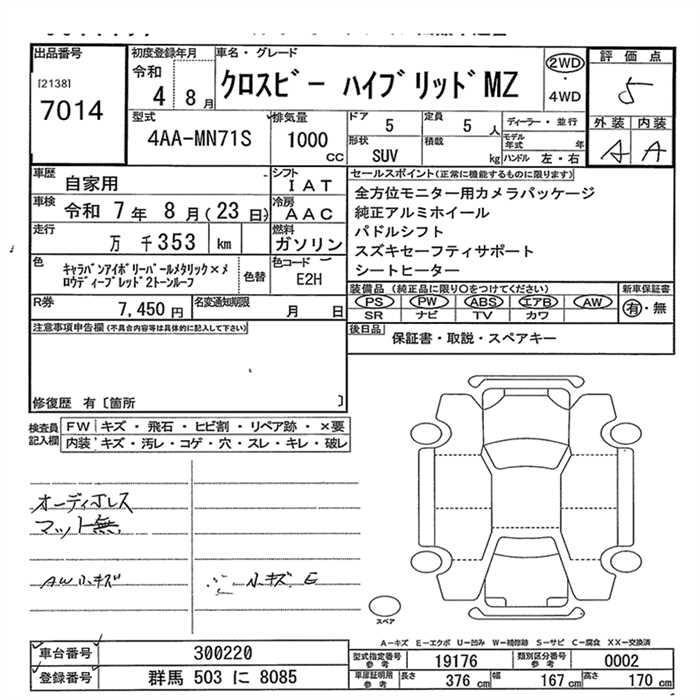 出品番号
[2138]
7014
初度登録年月
令和
4 8月
車名・グレード
クロスビー ハイブリッドMZ
2WD
・
4WD
評価点
5
外装 内装
A A
型式
4AA-MN71S
排気量
1000
cc
ドア
5
定員
5 人
形状
SUV
積載
kg
ディーラー・並行
モデル年式 年
ハンドル 左・右
車歴
自家用
シフト
IAT
車検
令和 7年 8月(23日)
冷房
AAC
走行
万 千353 km
燃料
ガソリン
色
キャラバンアイボリーパールメタリック×メ
ロウディープレッド2トーンルーフ
色替
色コード
E2H
R券
7,450 円
名変通知期限
月 日
セールスポイント(正常に機能するものに限ります)
全方位モニター用カメラパッケージ
純正アルミホイール
パドルシフト
スズキセーフティサポート
シートヒーター
装備品 (純正品に限り○をつけてください)
PS PW ABS エアB AW
SR ナビ TV カワ
新車保証書
有・無
後日品
保証書・取説・スペアキー
注意事項申告欄(不具合内容等は具体的に記入して下さい)
修復歴 有〔箇所 〕
検査員
記入欄
FW キズ・飛石・ヒビ割・リペア跡・×要
内装 キズ・汚レ・コゲ・穴・スレ・キレ・破レ
オーディオレス
マット無
AW小キズ
小キズ E
スペア
A－キズ E－エクボ U－凹み W－補修跡 S－サビ C－腐食 XX－交換済
車台番号
300220
登録番号
群馬 503 に 8085
型式指定番号
参考
19176
類別区分番号
参考
0002
車庫証明用
参考
長さ
376 cm
幅
167 cm
高さ
170 cm